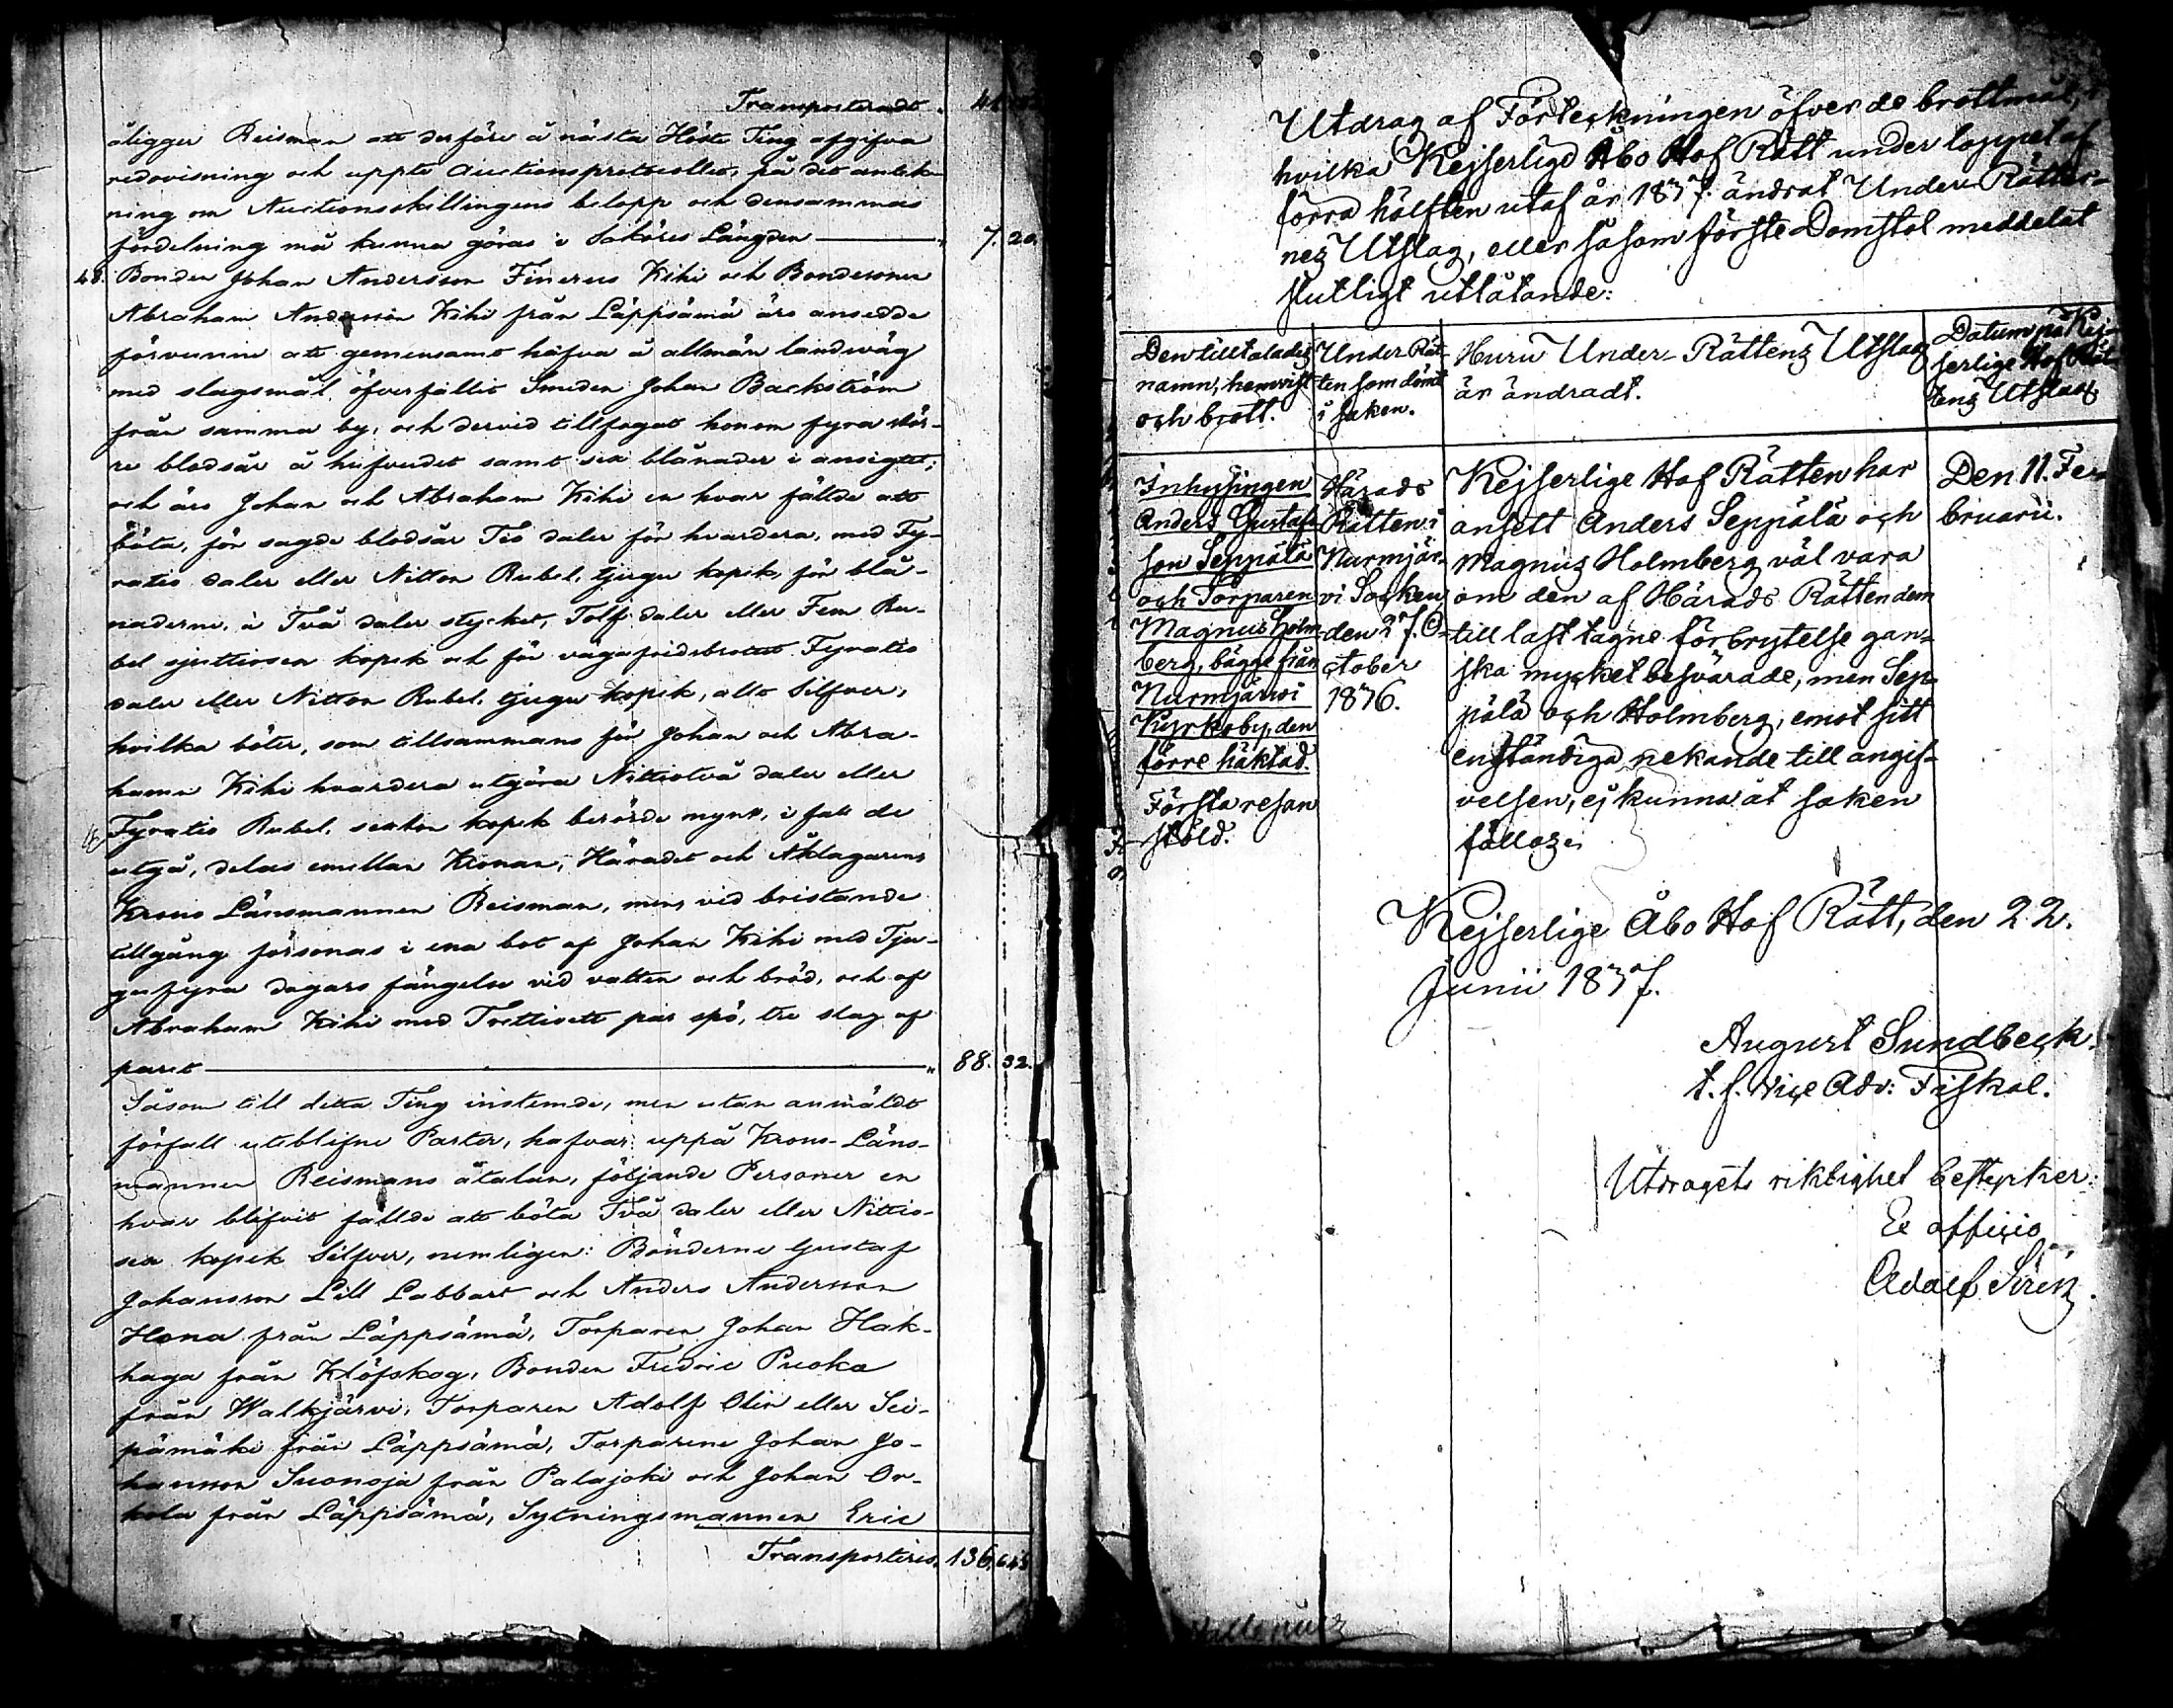 Transporteradt
åligger Reisman att derföre å nästa Höste Ting afgifva
redovisning och uppte Auctionsprotocollet, på det anteck-
ning om Auctionsskillingens belopp och densammas
fördelning må kunna göras i Saköres Längden — " 7. 20.
48. Bonden Johan Andersson Finerus Kihi och Bondesonen
Abraham Andersson Kihi från Läppsämä äro ansedde
förvunne att gemensamt hafva å allmän landsväg
med slagsmål öfverfallit Smeden Johan Backström
från samma by, och dervid tillfogat honom fyra stör-
re blodsår å hufvudet samt sex blånader i ansigtet;
och äro Johan och Abraham Kihi en hvar fällde att
böta, för sagde blodsår Tio daler för hvardera, med Fy-
ratio daler eller Nitton Rubel, tjugu kopek, för blå-
naderne, à Två daler stycket, Tolf daler eller Fem Ru-
bel sjuttiosex kopek och för vägafridsbrottet Fyratio
daler eller Nitton Rubel, tjugu kopek, allt Silfver,
hvilka böter, som tillsammans för Johan och Abra-
ham Kihi hvardera utgöra Nittiotvå daler eller
Fyratio Rubel, sexton kopek berörde mynt, i fall de
utgå, delas emellan Kronan, Häradet och Åklagaren
Krono Länsmannen Reisman, men vid bristande
tillgång försonas i ena bot af Johan Kihi med Tju-
gufyra dagars fängelse vid vatten och bröd, och af
Abraham Kihi med Trettioett par spö, tre slag af
paret — " 88. 32.
Såsom till detta Ting instemde, men utan anmäldt
förfall uteblifne Parter, hafva uppå Krono-Läns-
mannen Reismans åtalan, följande Personer en
hvar blifvit fällde att böta Två daler eller Nittio-
sex kopek Silfver, nemligen: Bönderne Gustaf
Johansson Lill Labbart och Anders Andersson
Hona från Läppsämä, Torparen Johan Hak-
haga från Klöfskog, Bonden Fredric Puoka
från Walkjärvi, Torparen Adolf Olin eller Sei-
pämäki från Läppsämä, Torparene Johan Jo-
hansson Suonoja från Palajoki och Johan Or-
kola från Läppsämä, Sytningsmannen Eric
Transporteras, 136,
Utdrag af Förteckningen öfver de brottmål,
hvilka Kejserlige Åbo Hof Rätt under loppet af
förra hälften utaf år 1837. ändrat Under-Rätter-
nes Utslag, eller såsom förste Domstol meddelat
slutligt utlåtande:
Den tilltalades
namn, hemvist
och brott.
Under Rät-
ten som dömt
i saken.
Huru Under-Rättens Utslag
är ändradt.
Datum på Kej-
serlige Hof Rät-
tens Utslag.
Inhysingen
Anders Gustafs-
son Seppälä
och Torparen
Magnus Holm-
berg, bägge från
Nurmjärwi
Kyrkoby, den
förre häktad.
Första resan
stöld.
Härads
Rätten i
Nurmjär-
vi Socken
den 27. O-
ctober
1836.
Kejserlige Hof Rätten har
ansett Anders Seppälä och
Magnus Holmberg väl vara
om den af Härads Rätten dem
till last tagne förbrytelse gan-
ska mycket besvärade, men Sep-
pälä och Holmberg, emot sitt
enständiga nekande till angif-
velsen, ej kunna åt saken
fällas.
Den 11. Fe-
bruarii.
Kejserlige Åbo Hof Rätt, den 22.
Junii 1837.
August Sundbeck.
t. f. Vice Adv: Fiskal.
Utdragets riktighet bestyrker:
Ex officio
Adolf Sirén.